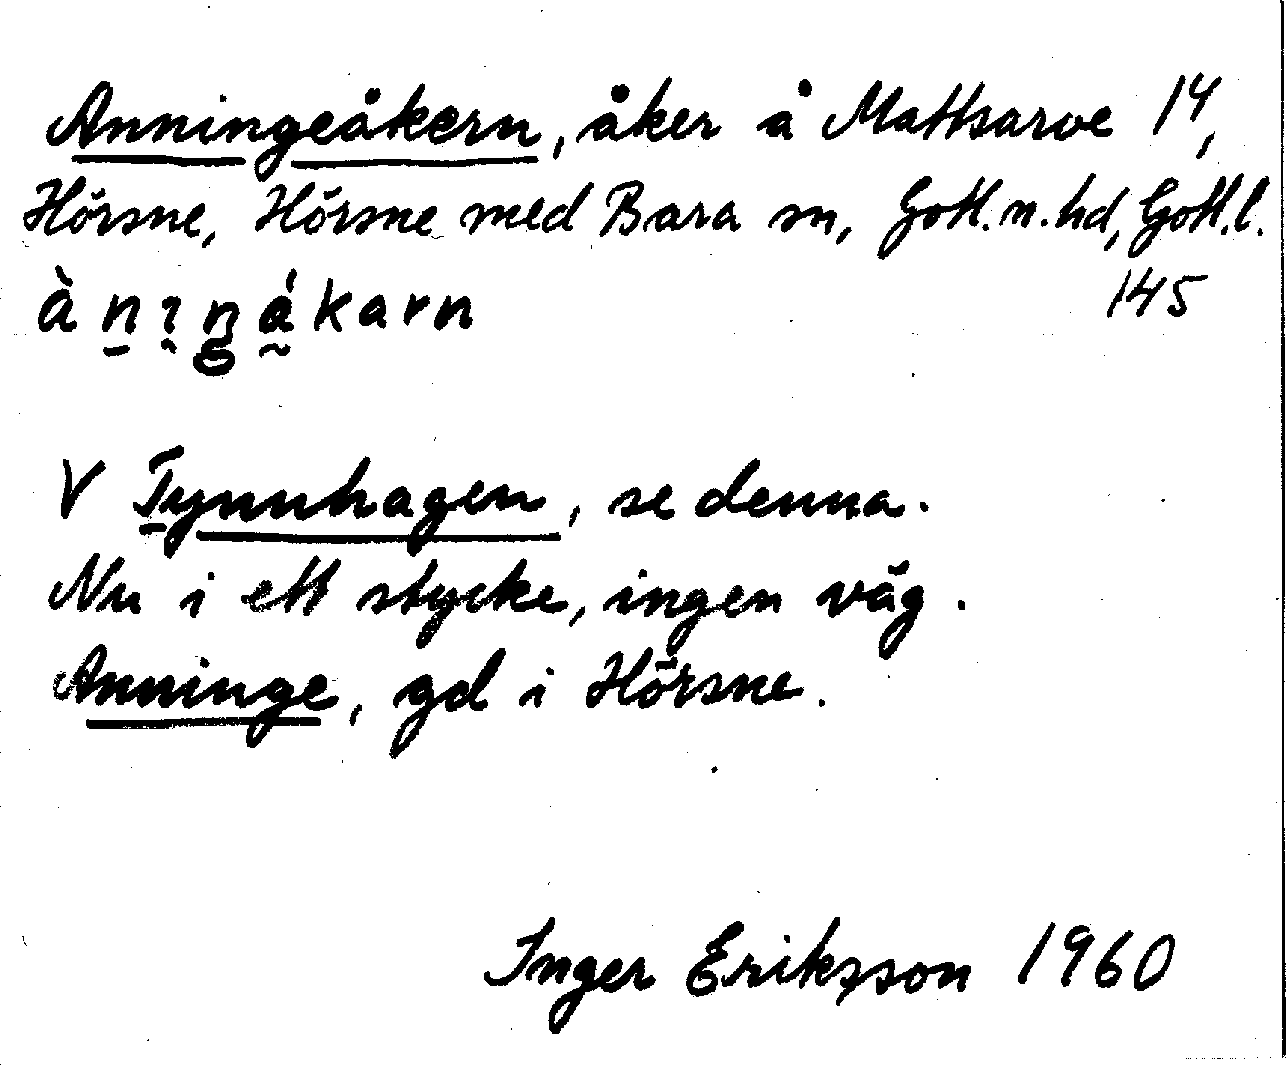 Anningeåkern, åker å Mattsarve 14,
Hörsne, Hörsne med Bara sn, Gotl. n. hd, Gotl. l.
145
V Tynnhagen, se denna.
Nu i ett stycke, ingen väg.
Anninge, gd i Hörsne.
Inger Eriksson 1960